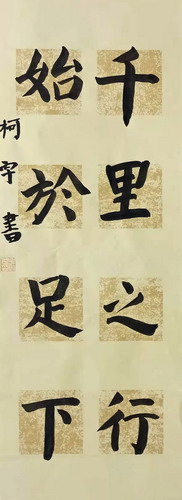 千里之行
始於足下
柯宇書